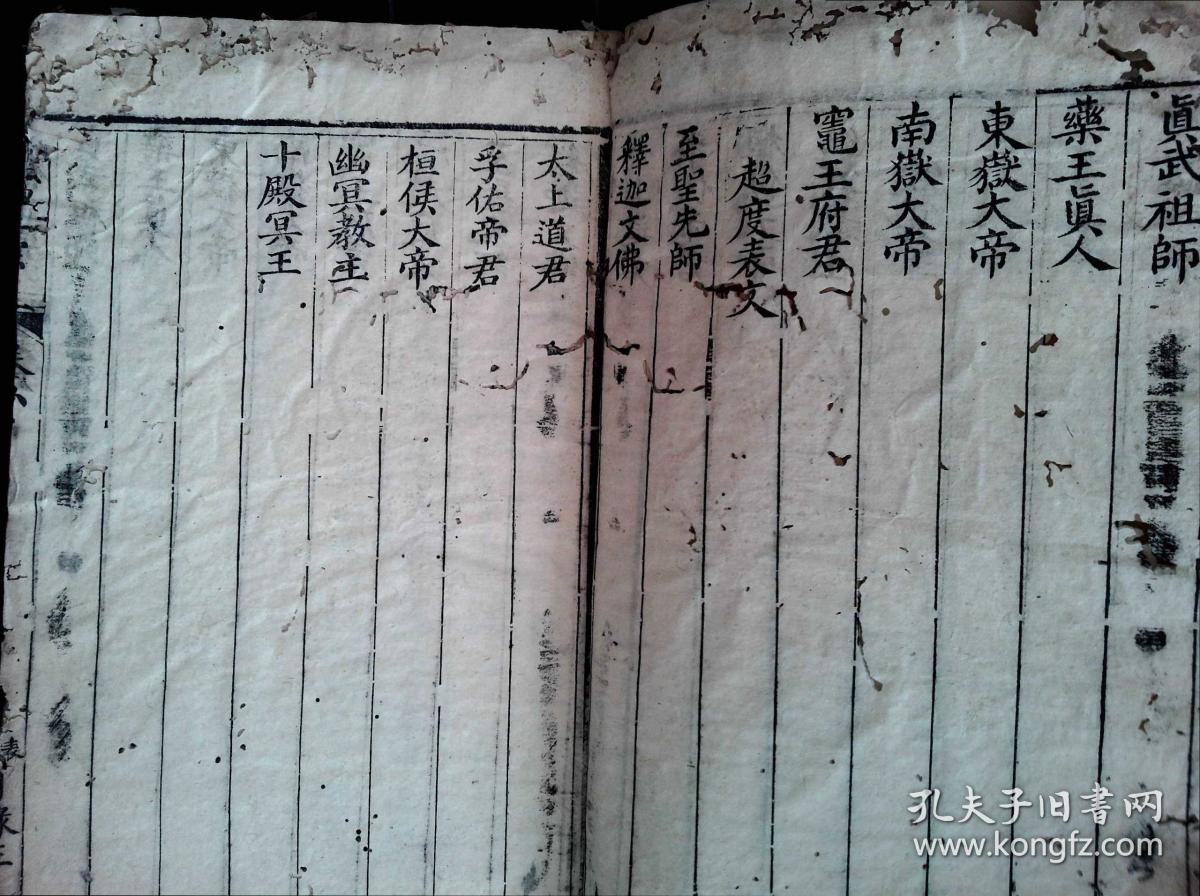 眞武祖師
藥王眞人
東嶽大帝
南嶽大帝
竈王府君
超度表文
至聖先師
釋迦文佛
太上道君
孚佑帝君
桓侯大帝
幽冥教主
十殿冥王
孔夫子旧书网
www.kongfz.com